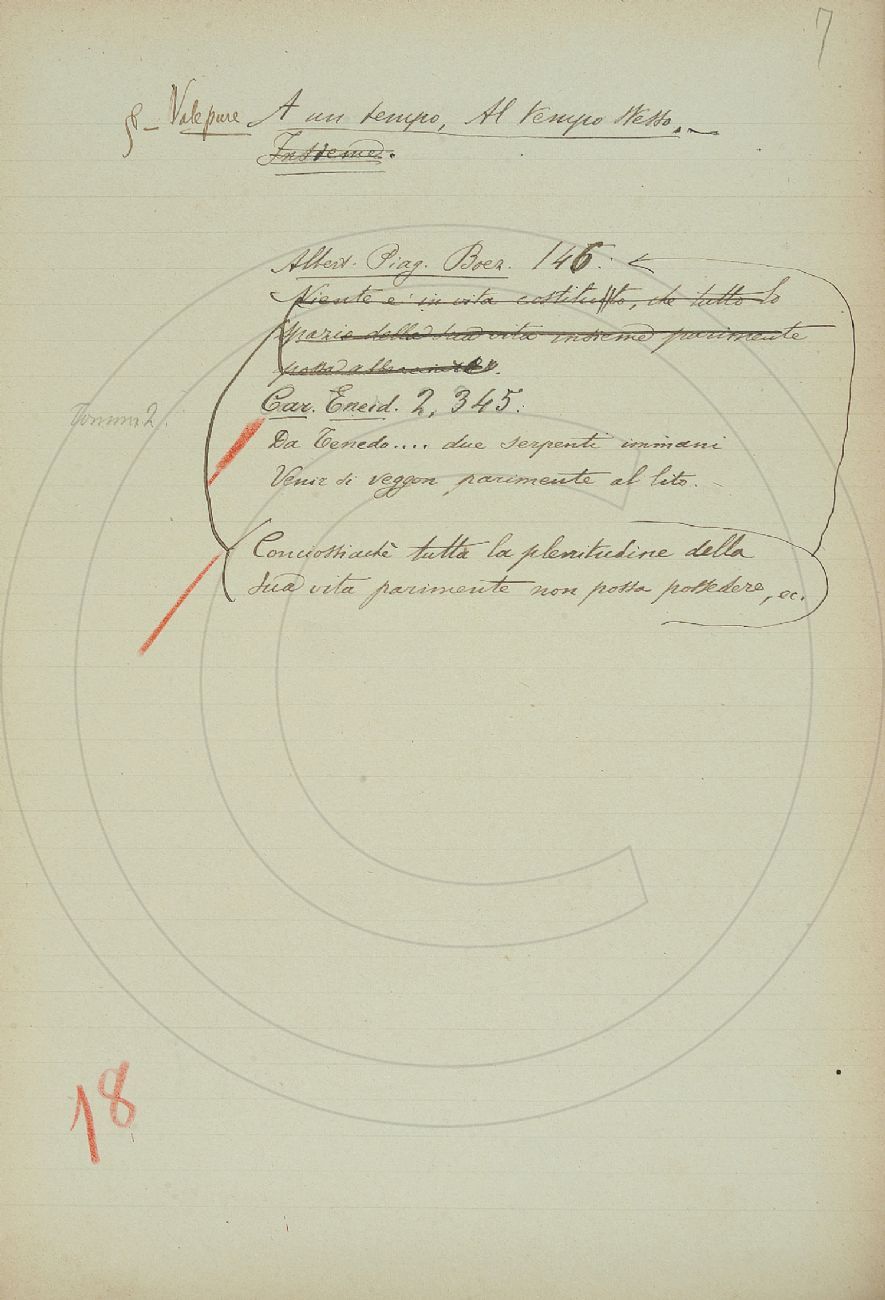 7
§ – Vale pure A un tempo, Al tempo stesso. –
Insieme.
Albert. Piag. Boez. 146.
Niente è in vita costituito, che tutto lo
spazio della sua vita insieme parimente
possa abbracciare.
Car. Eneid. 2, 345.
Tomm. 2.
Da Tenedo.... due serpenti immani
Venir si veggon parimente al lito.
Conciossiachè tutta la plenitudine della
sua vita parimente non possa possedere, ec.
18